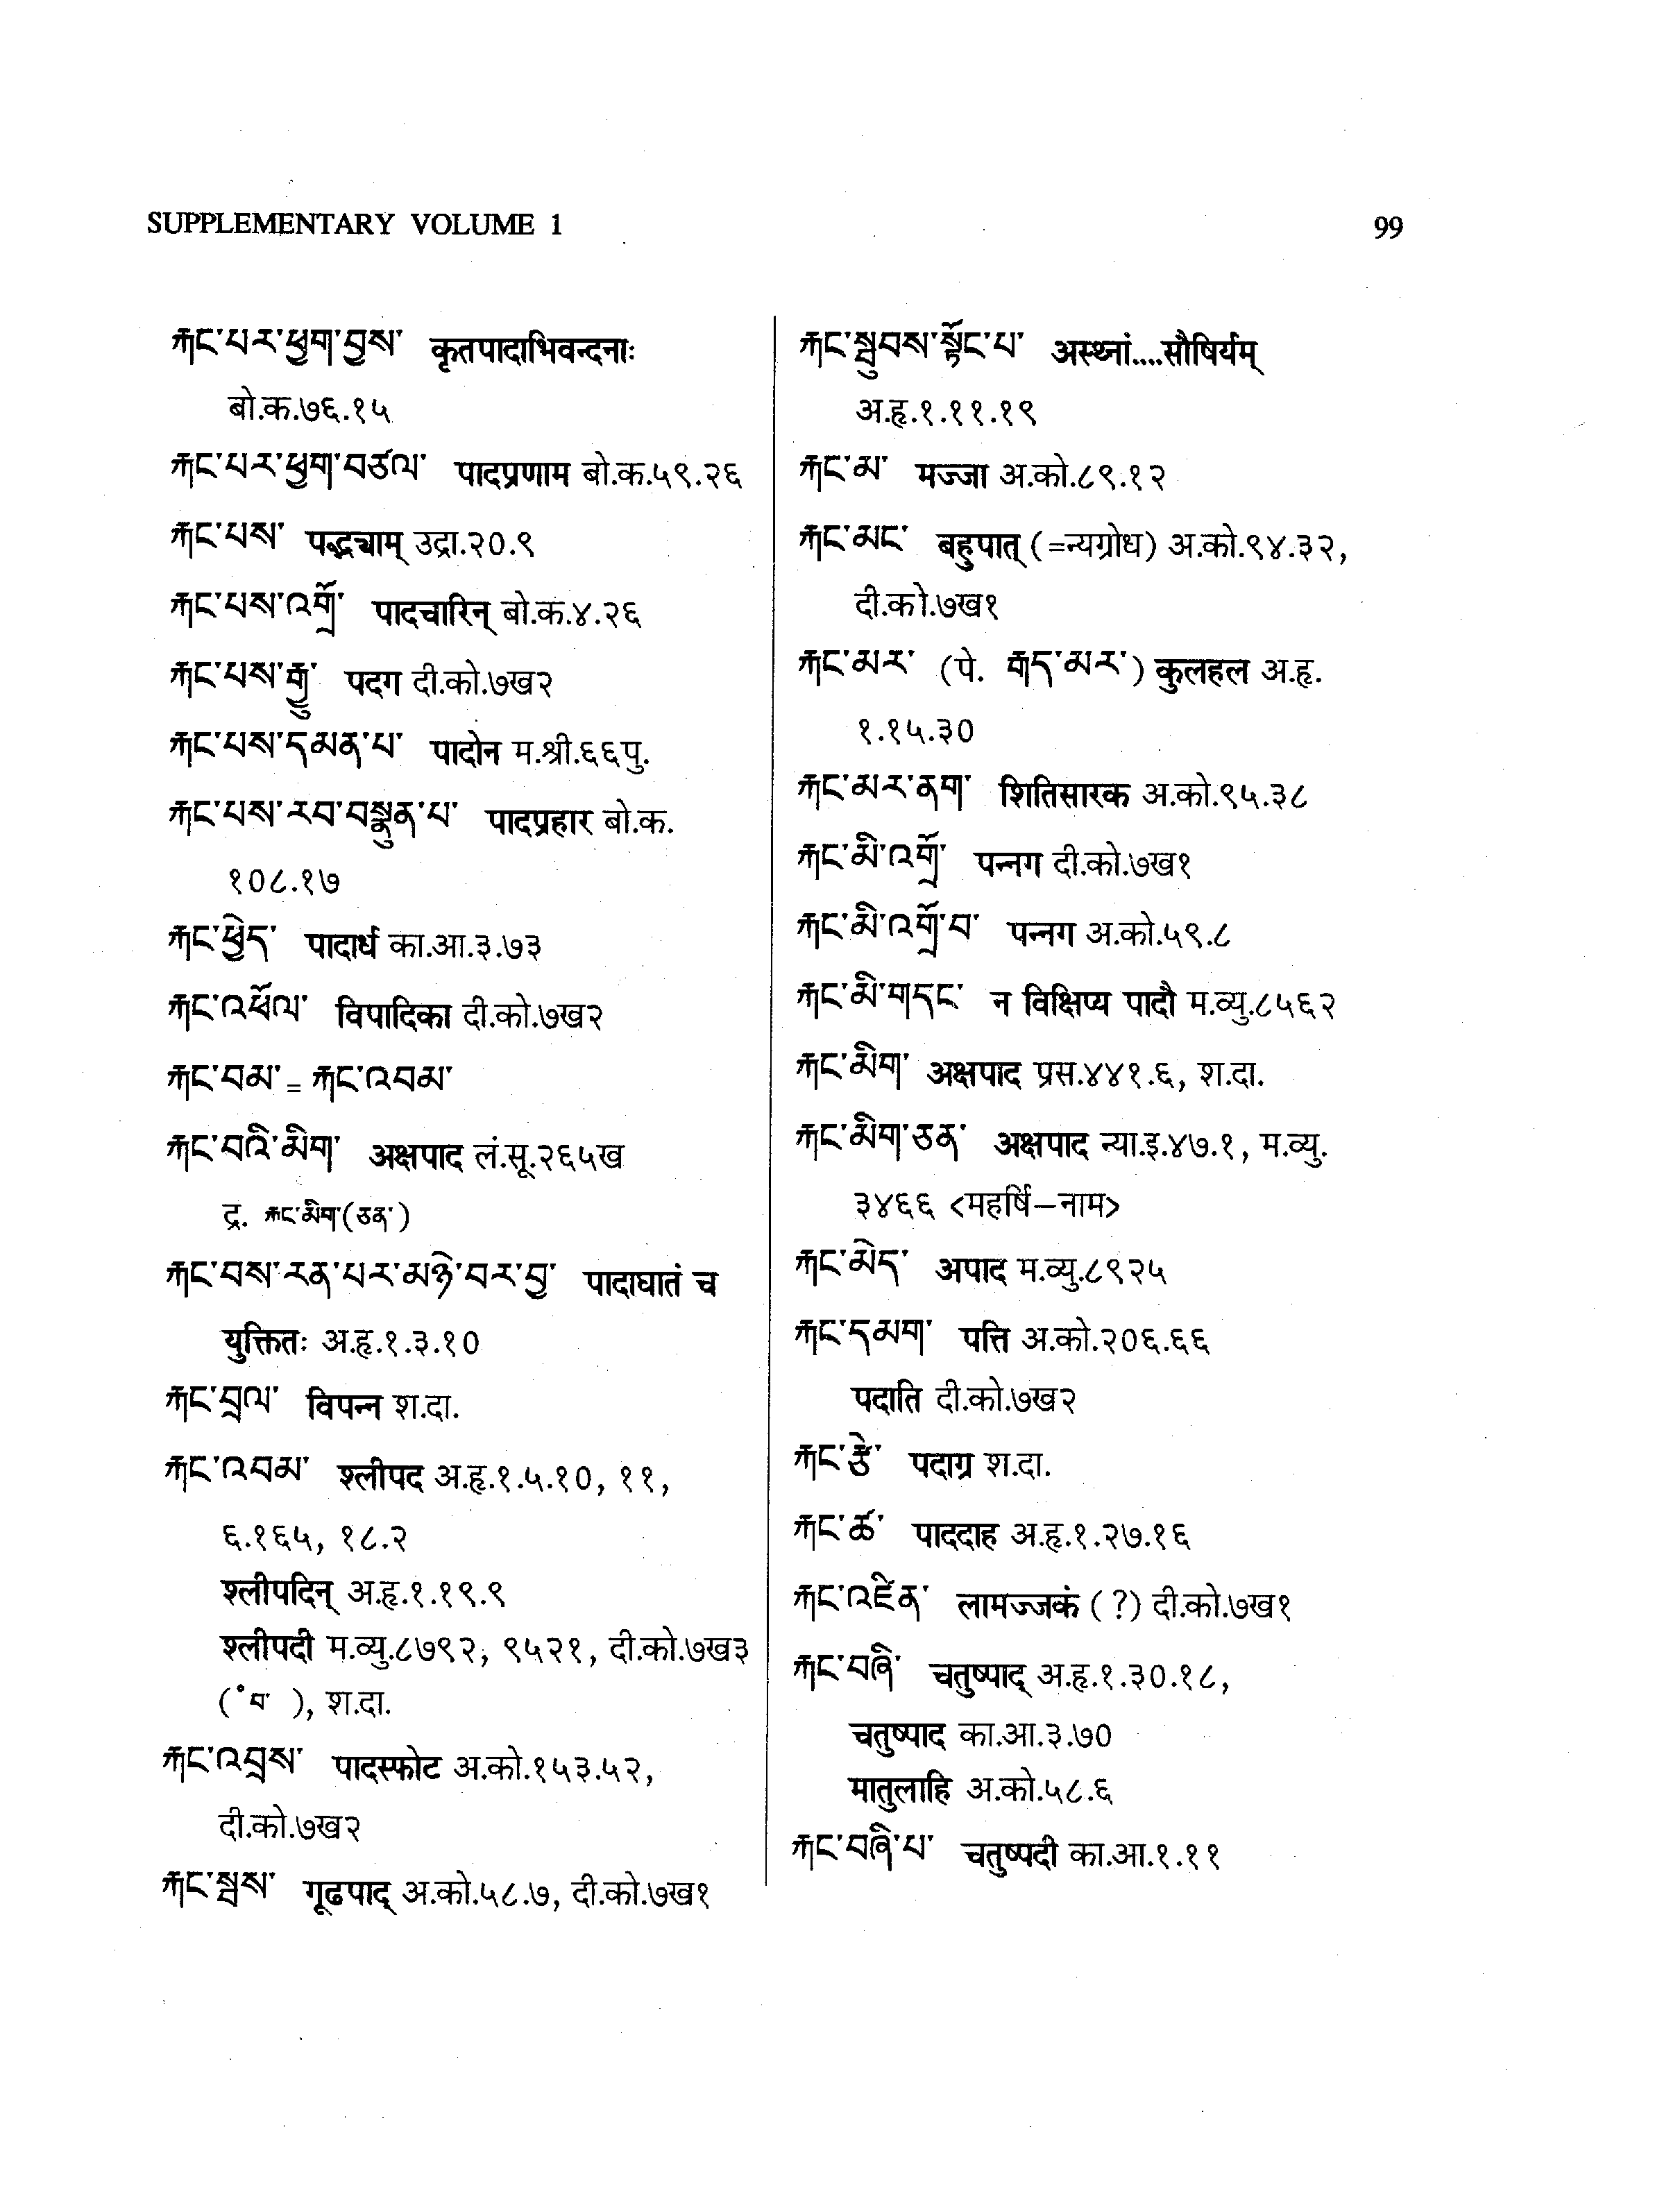 SUPPLEMENTARY VOLUME 1
99
རྐང་པར་ཕྱག་བྱས་ कृतपादाभिवन्दनाः
बो.क.७६.१५
རྐང་པར་ཕྱག་བཙལ་ पादप्रणाम बो.क.५९.२६
རྐང་པས་ पद्भ्याम् उद्रा.२०.९
རྐང་པས་འགྲོ་ पादचारिन् बो.क.४.२६
རྐང་པས་རྒྱུ་ पदग दी.को.७ख२
རྐང་པས་དམན་པ་ पादोन म.श्री.६६पु.
རྐང་པས་རབ་བསྣུན་པ་ पादप्रहार बो.क.
१०८.१७
རྐང་ཕྱེད་ पादार्ध का.आ.३.७३
རྐང་འཕོལ་ विपादिका दी.को.७ख२
རྐང་བམ་ = རྐང་འབམ་
རྐང་བའི་མིག་ अक्षपाद लं.सू.२६५ख
द्र. རྐང་མིག་(ཅན་)
རྐང་བས་རན་པར་མཉེ་བར་བྱ་ पादाघातं च
युक्तितः अ.हृ.१.३.१०
རྐང་བྲལ་ विपन्न श.दा.
རྐང་འབམ་ श्लीपद अ.हृ.१.५.१०, ११,
६.१६५, १८.२
श्लीपदिन् अ.हृ.१.१९.९
श्लीपदी म.व्यु.८७९२, ९५२१, दी.को.७ख३
(˚བ་ ), श.दा.
རྐང་འབྲས་ पादस्फोट अ.को.१५३.५२,
दी.को.७ख२
རྐང་སྦས་ गूढपाद् अ.को.५८.७, दी.को.७ख१
རྐང་སྦུབས་སྟོང་པ་ अस्थ्नां....सौषिर्यम्
अ.हृ.१.११.१९
རྐང་མ་ मज्जा अ.को.८९.१२
རྐང་མང་ बहुपात् (=न्यग्रोध) अ.को.९४.३२,
दी.को.७ख१
རྐང་མར་ (पे. གད་མར་) कुलहल अ.हृ.
१.१५.३०
རྐང་མར་ནག་ शितिसारक अ.को.९५.३८
རྐང་མི་འགྲོ་ पन्नग दी.को.७ख१
རྐང་མི་འགྲོ་བ་ पन्नग अ.को.५९.८
རྐང་མི་གདང་ न विक्षिप्य पादौ म.व्यु.८५६२
རྐང་མིག་ अक्षपाद प्रस.४४१.६, श.दा.
རྐང་མིག་ཅན་ अक्षपाद न्या.इ.४७.१, म.व्यु.
३४६६ <महर्षि–नाम>
རྐང་མེད་ अपाद म.व्यु.८९२५
རྐང་དམག་ पत्ति अ.को.२०६.६६
पदाति दी.को.७ख२
རྐང་རྩེ་ पदाग्र श.दा.
རྐང་ཚ་ पाददाह अ.हृ.१.२७.१६
རྐང་འཛིན་ लामज्जकं (?) दी.को.७ख१
རྐང་བཞི་ चतुष्पाद् अ.हृ.१.३०.१८,
चतुष्पाद का.आ.३.७०
मातुलाहि अ.को.५८.६
རྐང་བཞི་པ་ चतुष्पदी का.आ.१.११